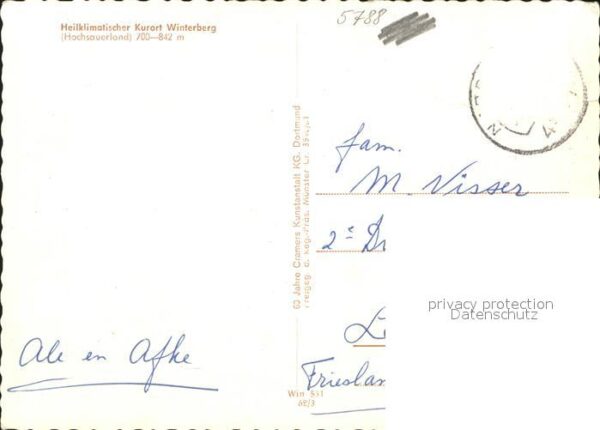 Heilklimatischer Kurort Winterberg
(Hochsauerland) 700—842 m
5788
fam.
M. Visser
2e
privacy protection
Datenschutz
Ale en Afke
60 Jahre Cramers Kunstanstalt KG. Dortmund
Freigeg. d. Reg.-Präs. Münster
Win 551
62/3